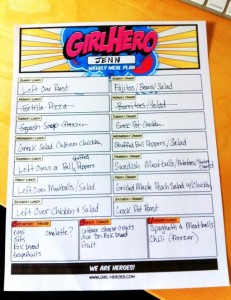 GIRLHERO
JENN
WEEKLY MEAL PLAN
Left Over Roast
Fajitas, Beans/Salad
Tortilla Pizza
Burritos/Salad
Squash Soup (freezer)
Crock Pot Chicken
Greek Salad w/ leftover Chicken
Stuffed Bell Peppers/Salad
Left Overs Bell Peppers
Swedish Meatballs/Potatoes
Left Over Meatballs/Salad
Grilled Maple Peach Salad w/
Left Over Chicken & Salad
Crock Pot Roast
eggs omelette?
grits
fruit
Grapefruits
Cottage cheese
fruit
Spaghetti & Meatballs
Chili (freezer)
WE ARE HEROES!
WWW.GIRL-HEROES.COM